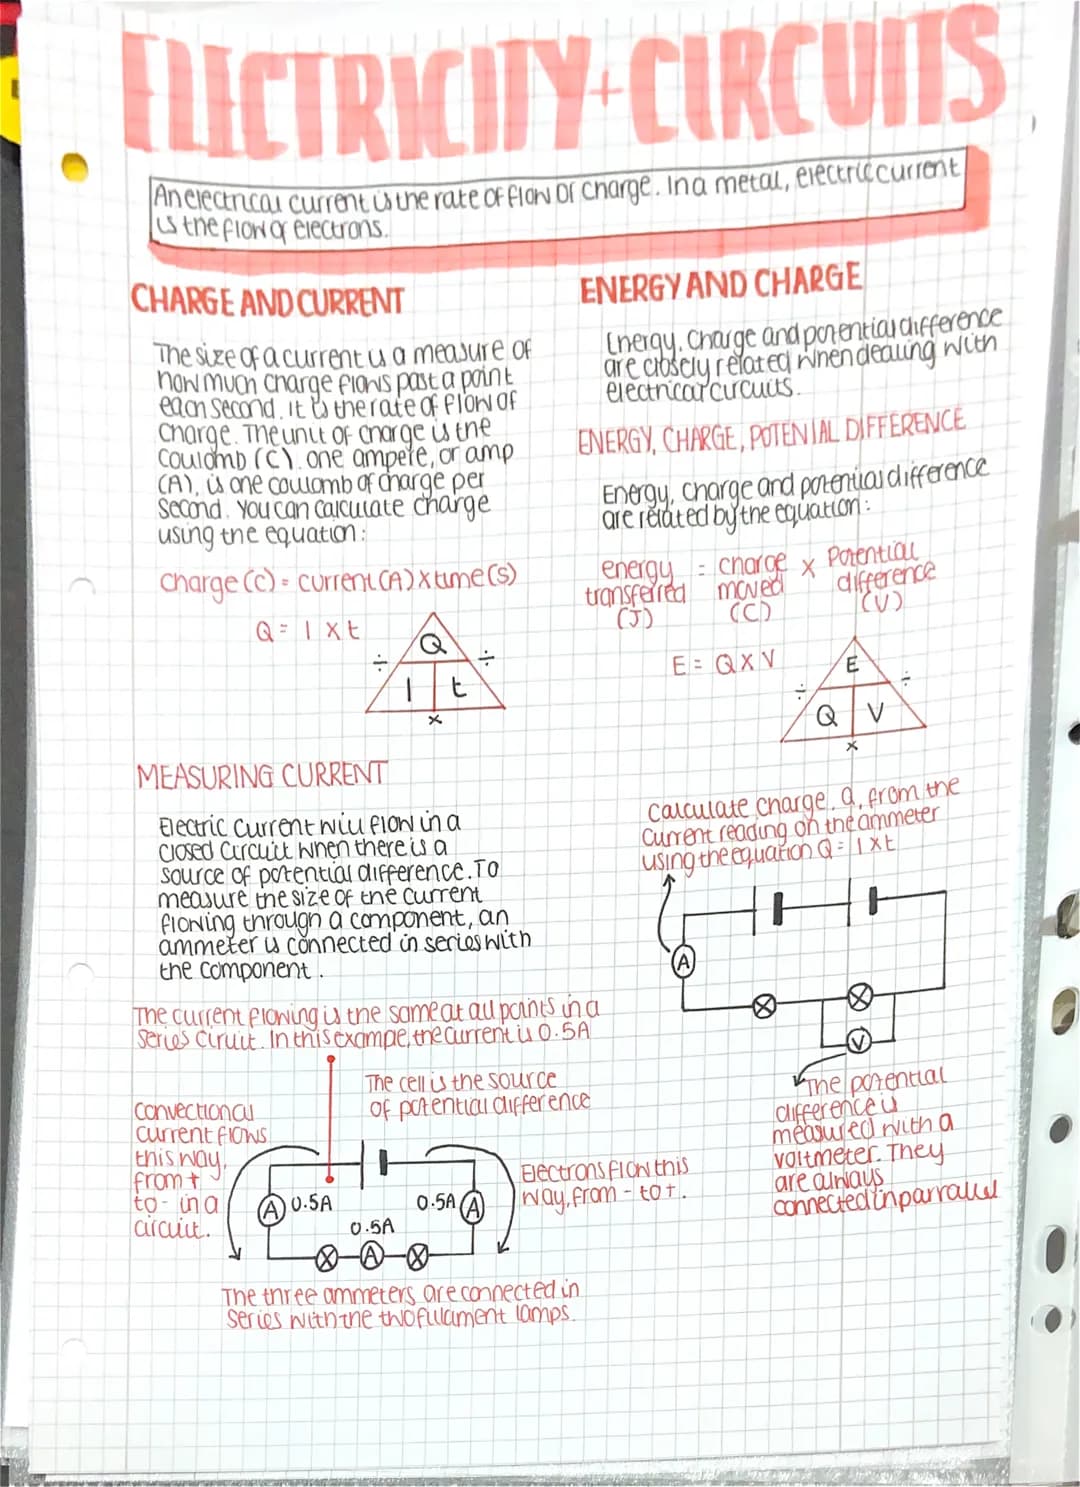 ELECTRICITY+CIRCUITS
An electrical current is the rate of flow of charge. In a metal, electric current
is the flow of electrons.
CHARGE AND CURRENT
The size of a current is a measure of
how much charge flows past a point
each second. It is the rate of flow of
charge. The unit of charge is the
Coulomb (C). one ampere, or amp
(A), is one coulomb of charge per
second. You can calculate charge
using the equation:
charge (c) = current (A) x time (s)
Q = I x t
Q
÷ ÷
I t
x
MEASURING CURRENT
Electric current will flow in a
closed circuit when there is a
source of potential difference. To
measure the size of the current
flowing through a component, an
ammeter is connected in series with
the component.
The current flowing is the same at all points in a
series ciruit. In this exampe, the current is 0.5A
The cell is the source
of potential difference
Convectional
current flows
this way,
from +
to - in a
circuit.
A 0.5A
0.5A A
0.5A
A
Electrons flow this
way, from - to +.
The three ammeters are connected in
series with the two fulament lamps.
ENERGY AND CHARGE
Energy, Charge and potential difference
are closely related when dealing with
electrical circuits.
ENERGY, CHARGE, POTENIAL DIFFERENCE
Energy, charge and potential difference
are related by the equation:
energy = charge x Potential
transferred moved difference
(J) (C) (V)
E = Q x V
E
÷ ÷
Q V
x
Calculate charge, Q, from the
current reading on the ammeter
using the equation Q = I x t
A
V
The potential
difference is
measured with a
voltmeter. They
are always
connected in parralel